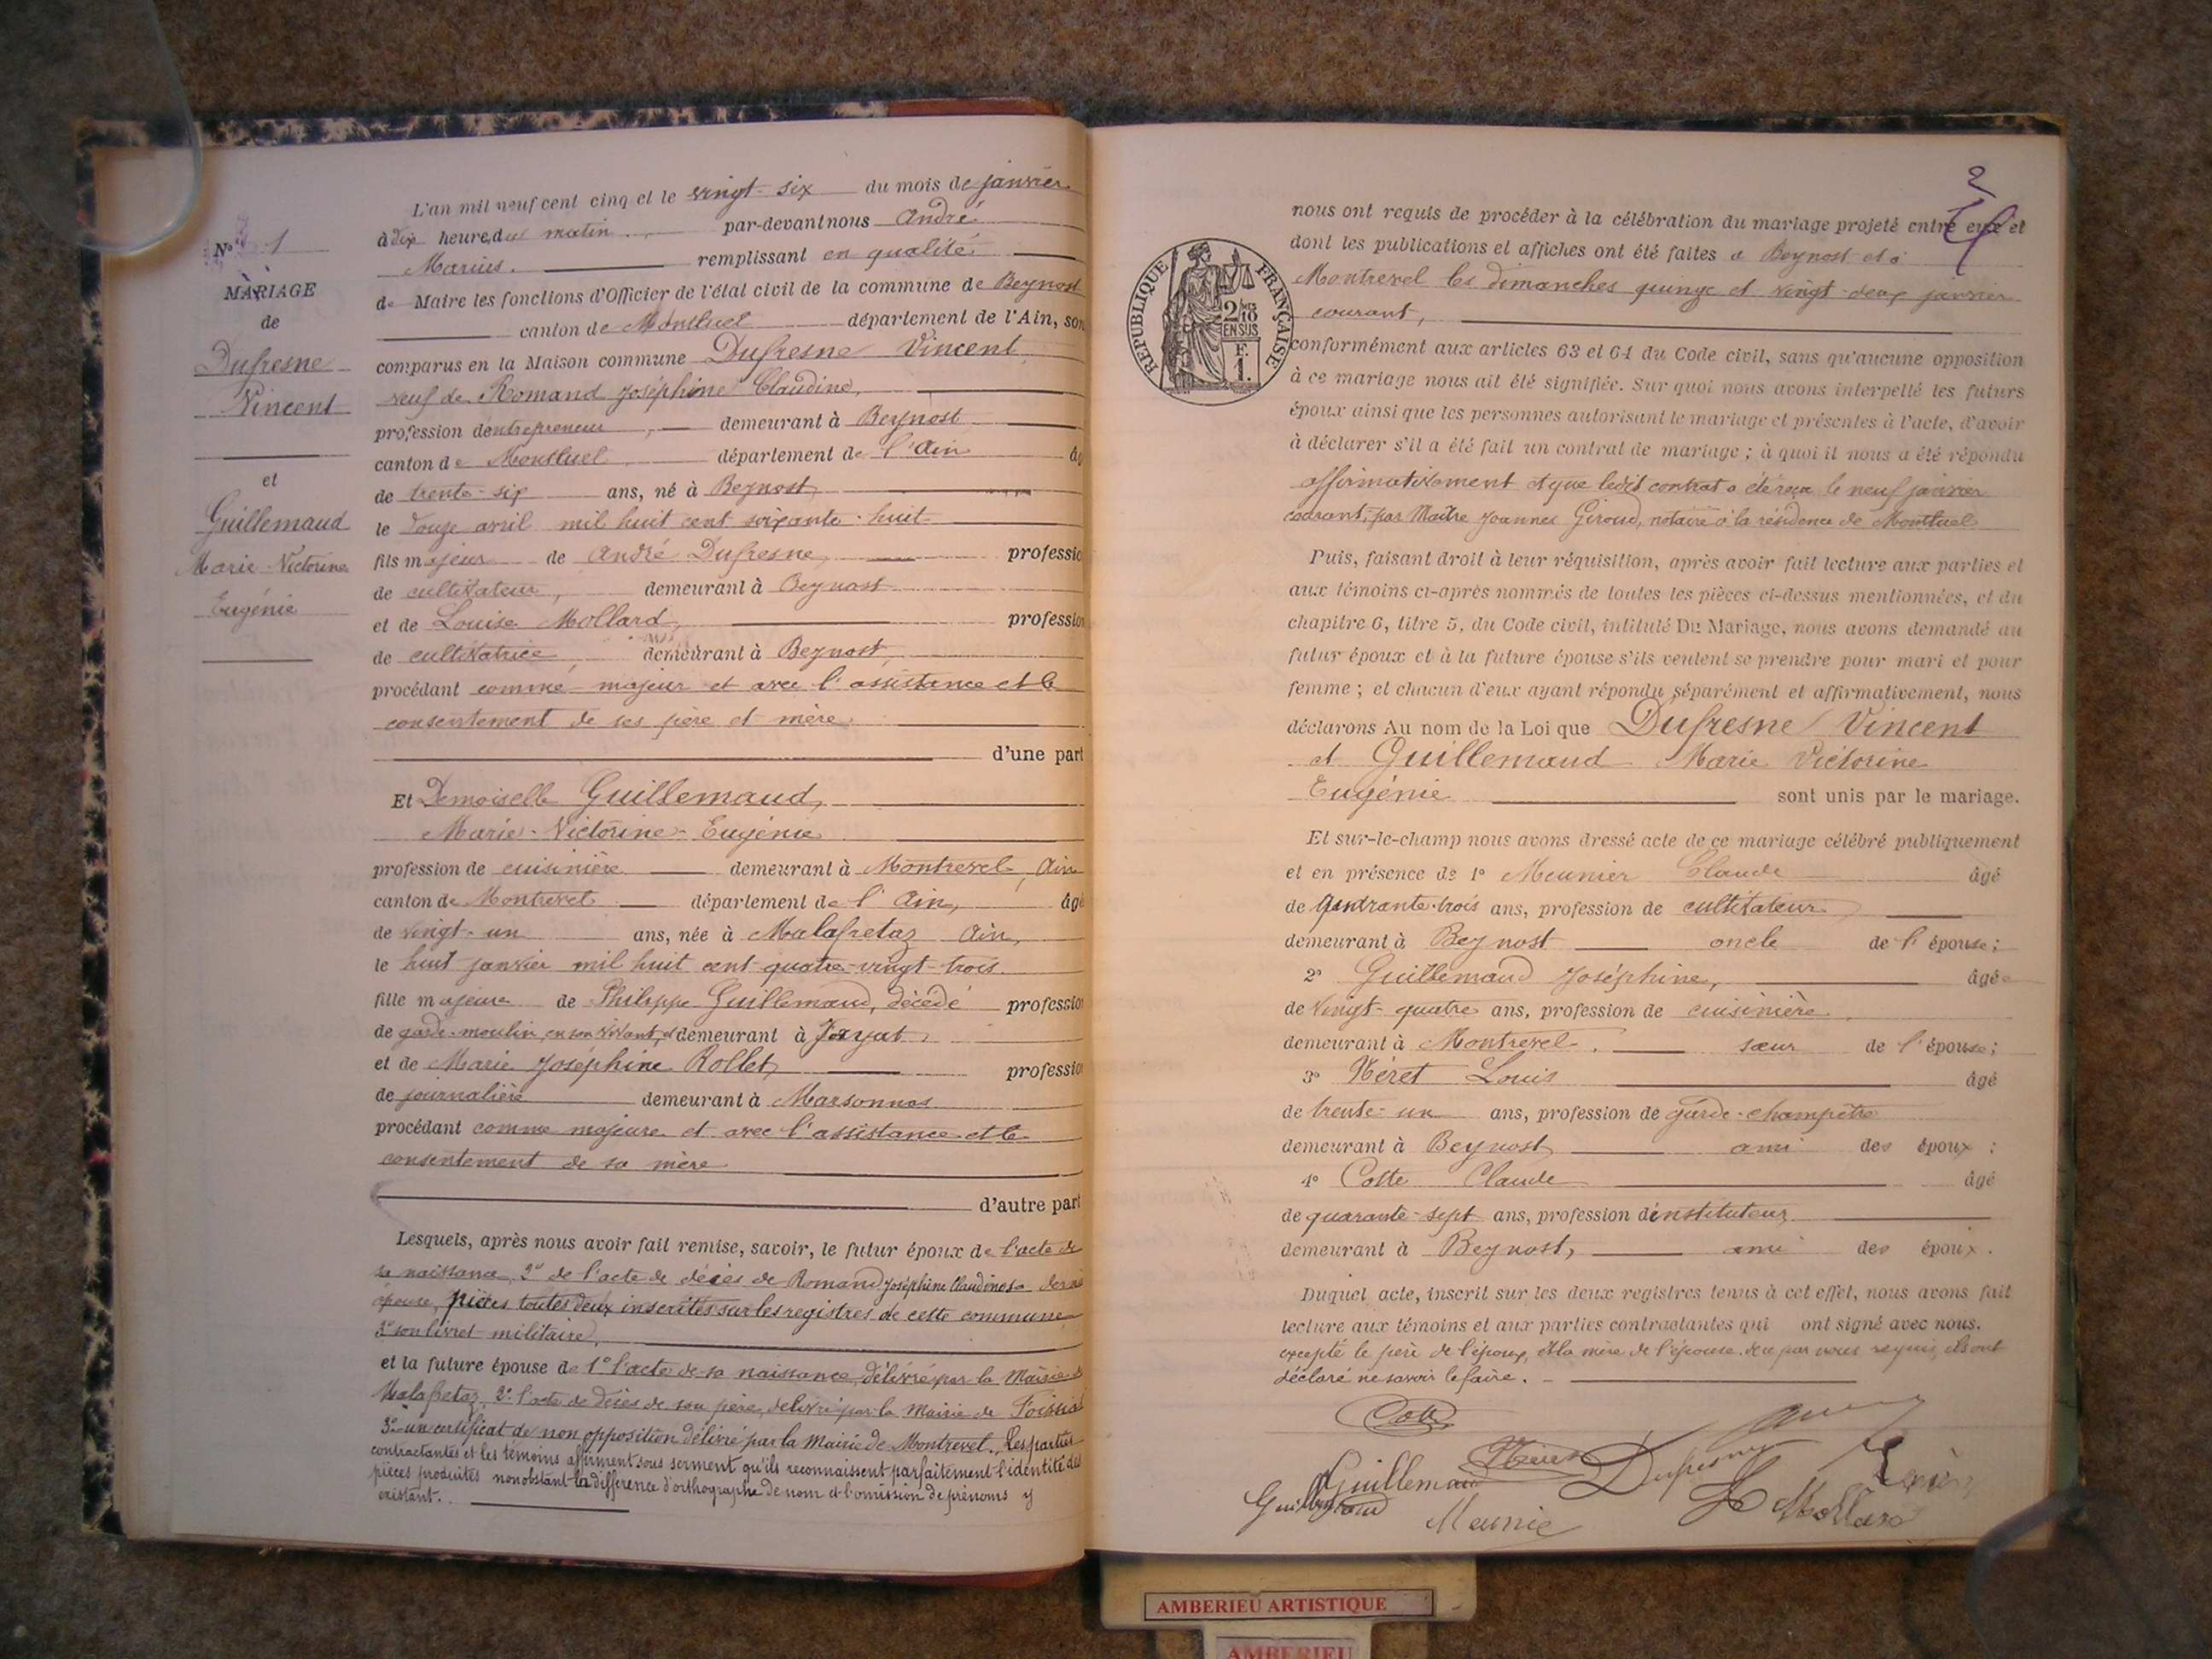 N° 1
MARIAGE
de
Dufresne
Vincent
et
Guillemaud
Marie-Victorine
Eugénie
L'an mil neuf cent cinq et le vingt-six du mois de janvier
à dix heures du matin par-devant nous André
Marius. remplissant en qualité
de Maire les fonctions d'Officier de l'état civil de la commune de Beynost
canton de Montluel département de l'Ain, son
comparus en la Maison commune Dufresne Vincent
veuf de Romand Joséphine Claudine,
profession d'entrepreneur, demeurant à Beynost
canton de Montluel département de l'Ain âg
de trente-six ans, né à Beynost,
le douze avril mil huit cent soixante-huit
fils majeur de André Dufresne, professio
de cultivateur, demeurant à Beynost
et de Louise Mollard, profession
de cultivatrice, demeurant à Beynost,
procédant comme majeur et avec l'assistance et le
consentement de ses père et mère.
d'une part
Et Demoiselle Guillemaud,
Marie-Victorine-Eugénie
profession de cuisinière demeurant à Montrevel, Ain
canton de Montrevel département de l'Ain, âgé
de vingt-un ans, née à Malafretaz Ain,
le huit janvier mil huit cent quatre-vingt-trois.
fille majeure de Philippe Guillemaud, décédé profession
de garde-moulin, en son vivant, demeurant à Jayat,
et de Marie Joséphine Rollet, professio
de journalière demeurant à Marsonnas
procédant comme majeure et avec l'assistance et le
consentement de sa mère
d'autre part
Lesquels, après nous avoir fait remise, savoir, le futur époux de l'acte de
sa naissance, 2° de l'acte de décès de Romand Joséphine Claudine sa
épouse, pièces toutes deux inscrites sur les registres de cette commune
3° son livret militaire,
et la future épouse de 1° l'acte de sa naissance, délivré par la Mairie de
Malafretaz, 2° l'acte de décès de son père, délivré par la Mairie de
3° un certificat de non opposition délivré par la Mairie de Montrevel. Les parties
contractantes et les témoins affirment sous serment qu'ils reconnaissent parfaitement l'identité des
pièces produites nonobstant la différence d'orthographe de nom et l'omission de prénoms y
existant.
2
REPUBLIQUE FRANÇAISE
2/10 EN SUS
F. 1.
nous ont requis de procéder à la célébration du mariage projeté entre eux et
dont les publications et affiches ont été faites à Beynost et à
Montrevel les dimanches quinze et vingt-deux janvier
courant,
conformément aux articles 63 et 64 du Code civil, sans qu'aucune opposition
à ce mariage nous ait été signifiée. Sur quoi nous avons interpellé les futurs
époux ainsi que les personnes autorisant le mariage et présentes à l'acte, d'avoir
à déclarer s'il a été fait un contrat de mariage ; à quoi il nous a été répondu
affirmativement et que ledit contrat a été reçu le neuf janvier
courant, par Maître Joannes Giroud, notaire à la résidence de Montluel
Puis, faisant droit à leur réquisition, après avoir fait lecture aux parties et
aux témoins ci-après nommés de toutes les pièces ci-dessus mentionnées, et du
chapitre 6, titre 5, du Code civil, intitulé Du Mariage, nous avons demandé au
futur époux et à la future épouse s'ils veulent se prendre pour mari et pour
femme ; et chacun d'eux ayant répondu séparément et affirmativement, nous
déclarons Au nom de la Loi que Dufresne Vincent
et Guillemaud Marie Victorine
Eugénie sont unis par le mariage.
Et sur-le-champ nous avons dressé acte de ce mariage célébré publiquement
et en présence de 1° Meunier Claude âgé
de quarante-trois ans, profession de cultivateur,
demeurant à Beynost oncle de l'épouse ;
2° Guillemaud Joséphine, âgée
de vingt-quatre ans, profession de cuisinière.
demeurant à Montrevel. sœur de l'épouse ;
3° Néret Louis âgé
de trente-un ans, profession de garde-champêtre
demeurant à Beynost, ami des époux ;
4° Cotte Claude âgé
de quarante-sept ans, profession d'instituteur,
demeurant à Beynost, ami des époux.
Duquel acte, inscrit sur les deux registres tenus à cet effet, nous avons fait
lecture aux témoins et aux parties contractantes qui ont signé avec nous.
excepté le père de l'époux, et la mère de l'épouse, de ce par nous requis, ils ont
déclaré ne savoir le faire.
Cotte
Guillemaud Néret Dufresne
Guillemaud Meunie L Mollard
AMBERIEU ARTISTIQUE
AMBERIEU